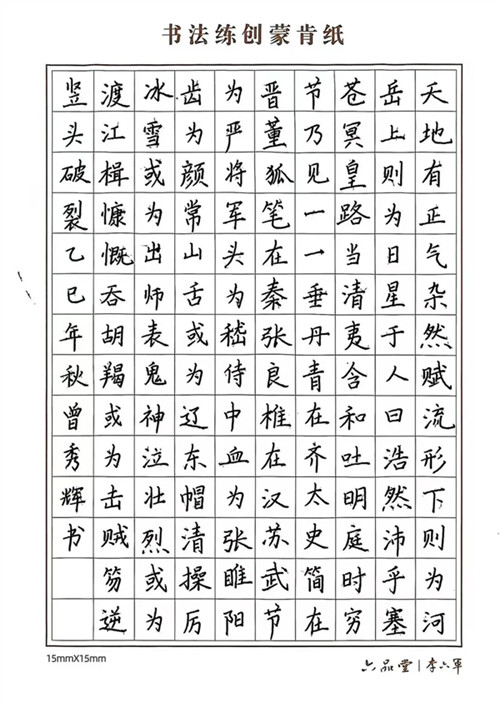 书法练创蒙肯纸
天地有正气杂然赋流形下则为河
岳上则为日星于人曰浩然沛乎塞
苍冥皇路当清夷含和吐明庭时穷
节乃见一一垂丹青在齐太史简在
晋董狐笔在秦张良椎在汉苏武节
为严将军头为嵇侍中血为张睢阳
齿为颜常山舌或为辽东帽清操厉
冰雪或为出师表鬼神泣壮烈或为
渡江楫慷慨吞胡羯或为击贼笏逆
竖头破裂乙巳年秋曾秀辉书
15mmX15mm
六品堂|李六军